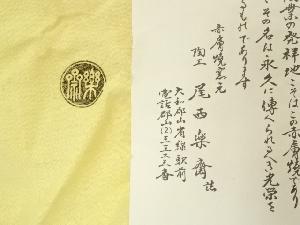 窯業の発祥地こそはこの赤膚焼であり
その名は永久に傳へられるべき光栄を
るものであります
赤膚焼窯元
陶工 尾西楽斎 誌
大和郡山省線駅前
電話郡山(2)三三三番
楽斎